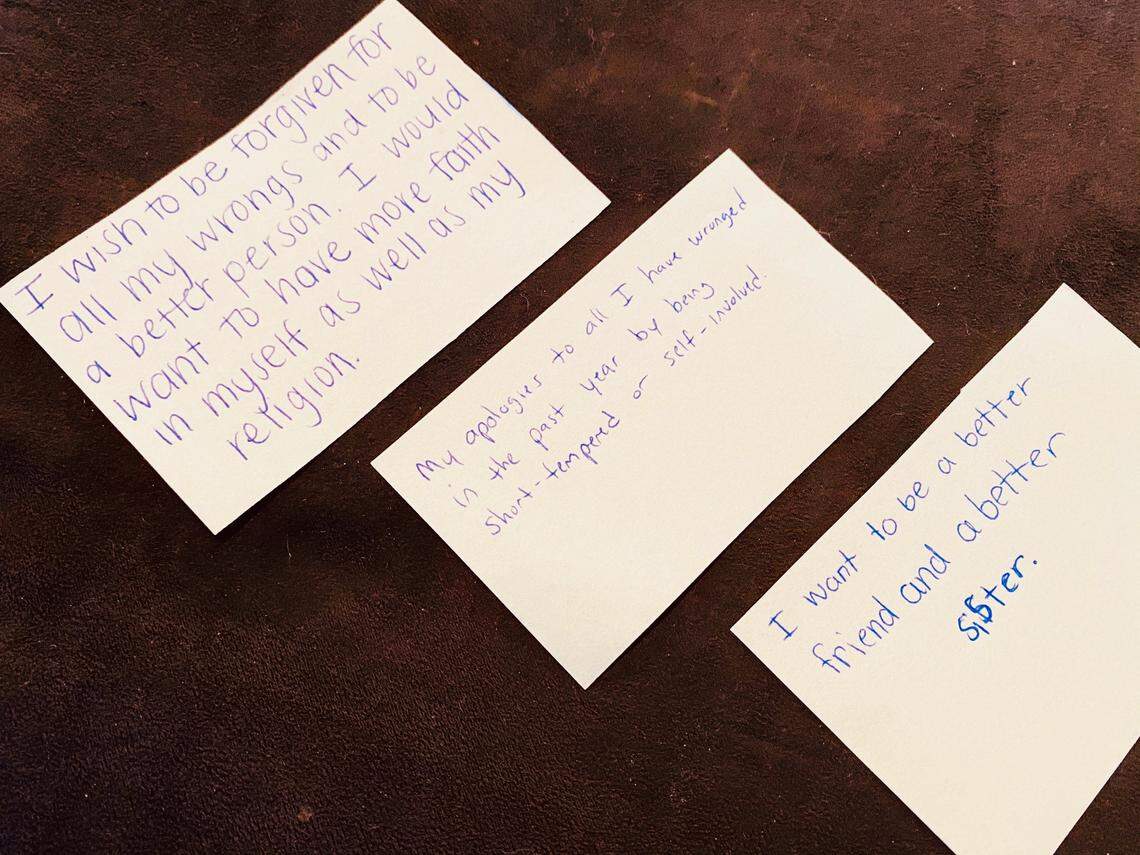 I wish to be forgiven for
all my wrongs and to be
a better person. I would
want to have more faith
in myself as well as my
religion.
My apologies to all I have wronged
in the past year by being
short-tempered or self-involved.
I want to be a better
friend and a better
sister.